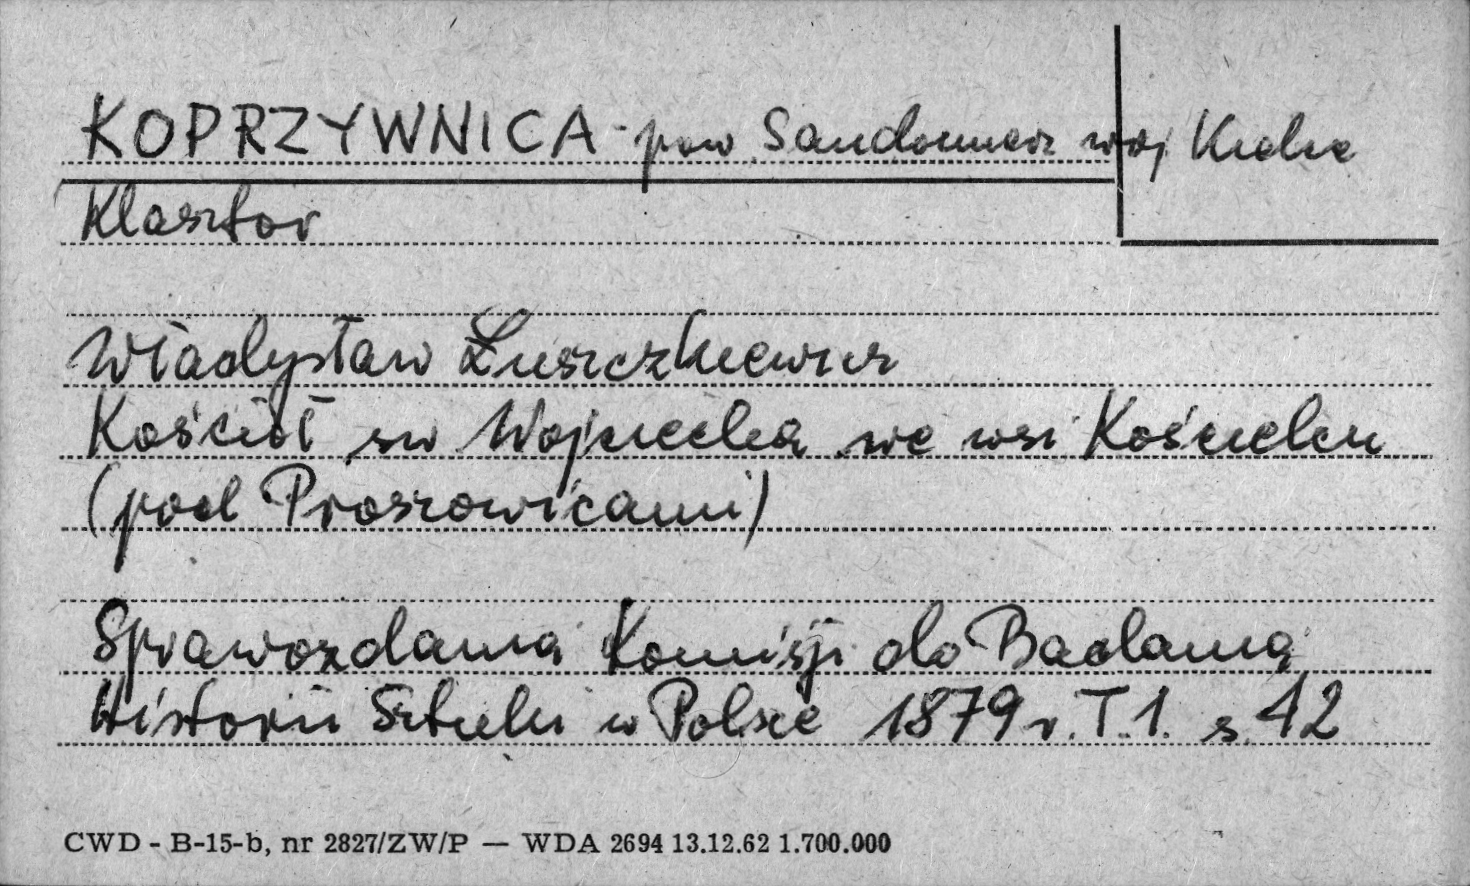 KOPRZYWNICA - pow Sandomierz woj Kielce
Klasztor
Władysław Łuszczkiewicz
Kościół sw Wojciecha we wsi Kościelcu
(pod Proszowicami)
Sprawozdania Komisji do Badania
Historii Sztuki w Polsce 1879 r. T. 1. s. 12
CWD - B-15-b, nr 2827/ZW/P — WDA 2694 13.12.62 1.700.000